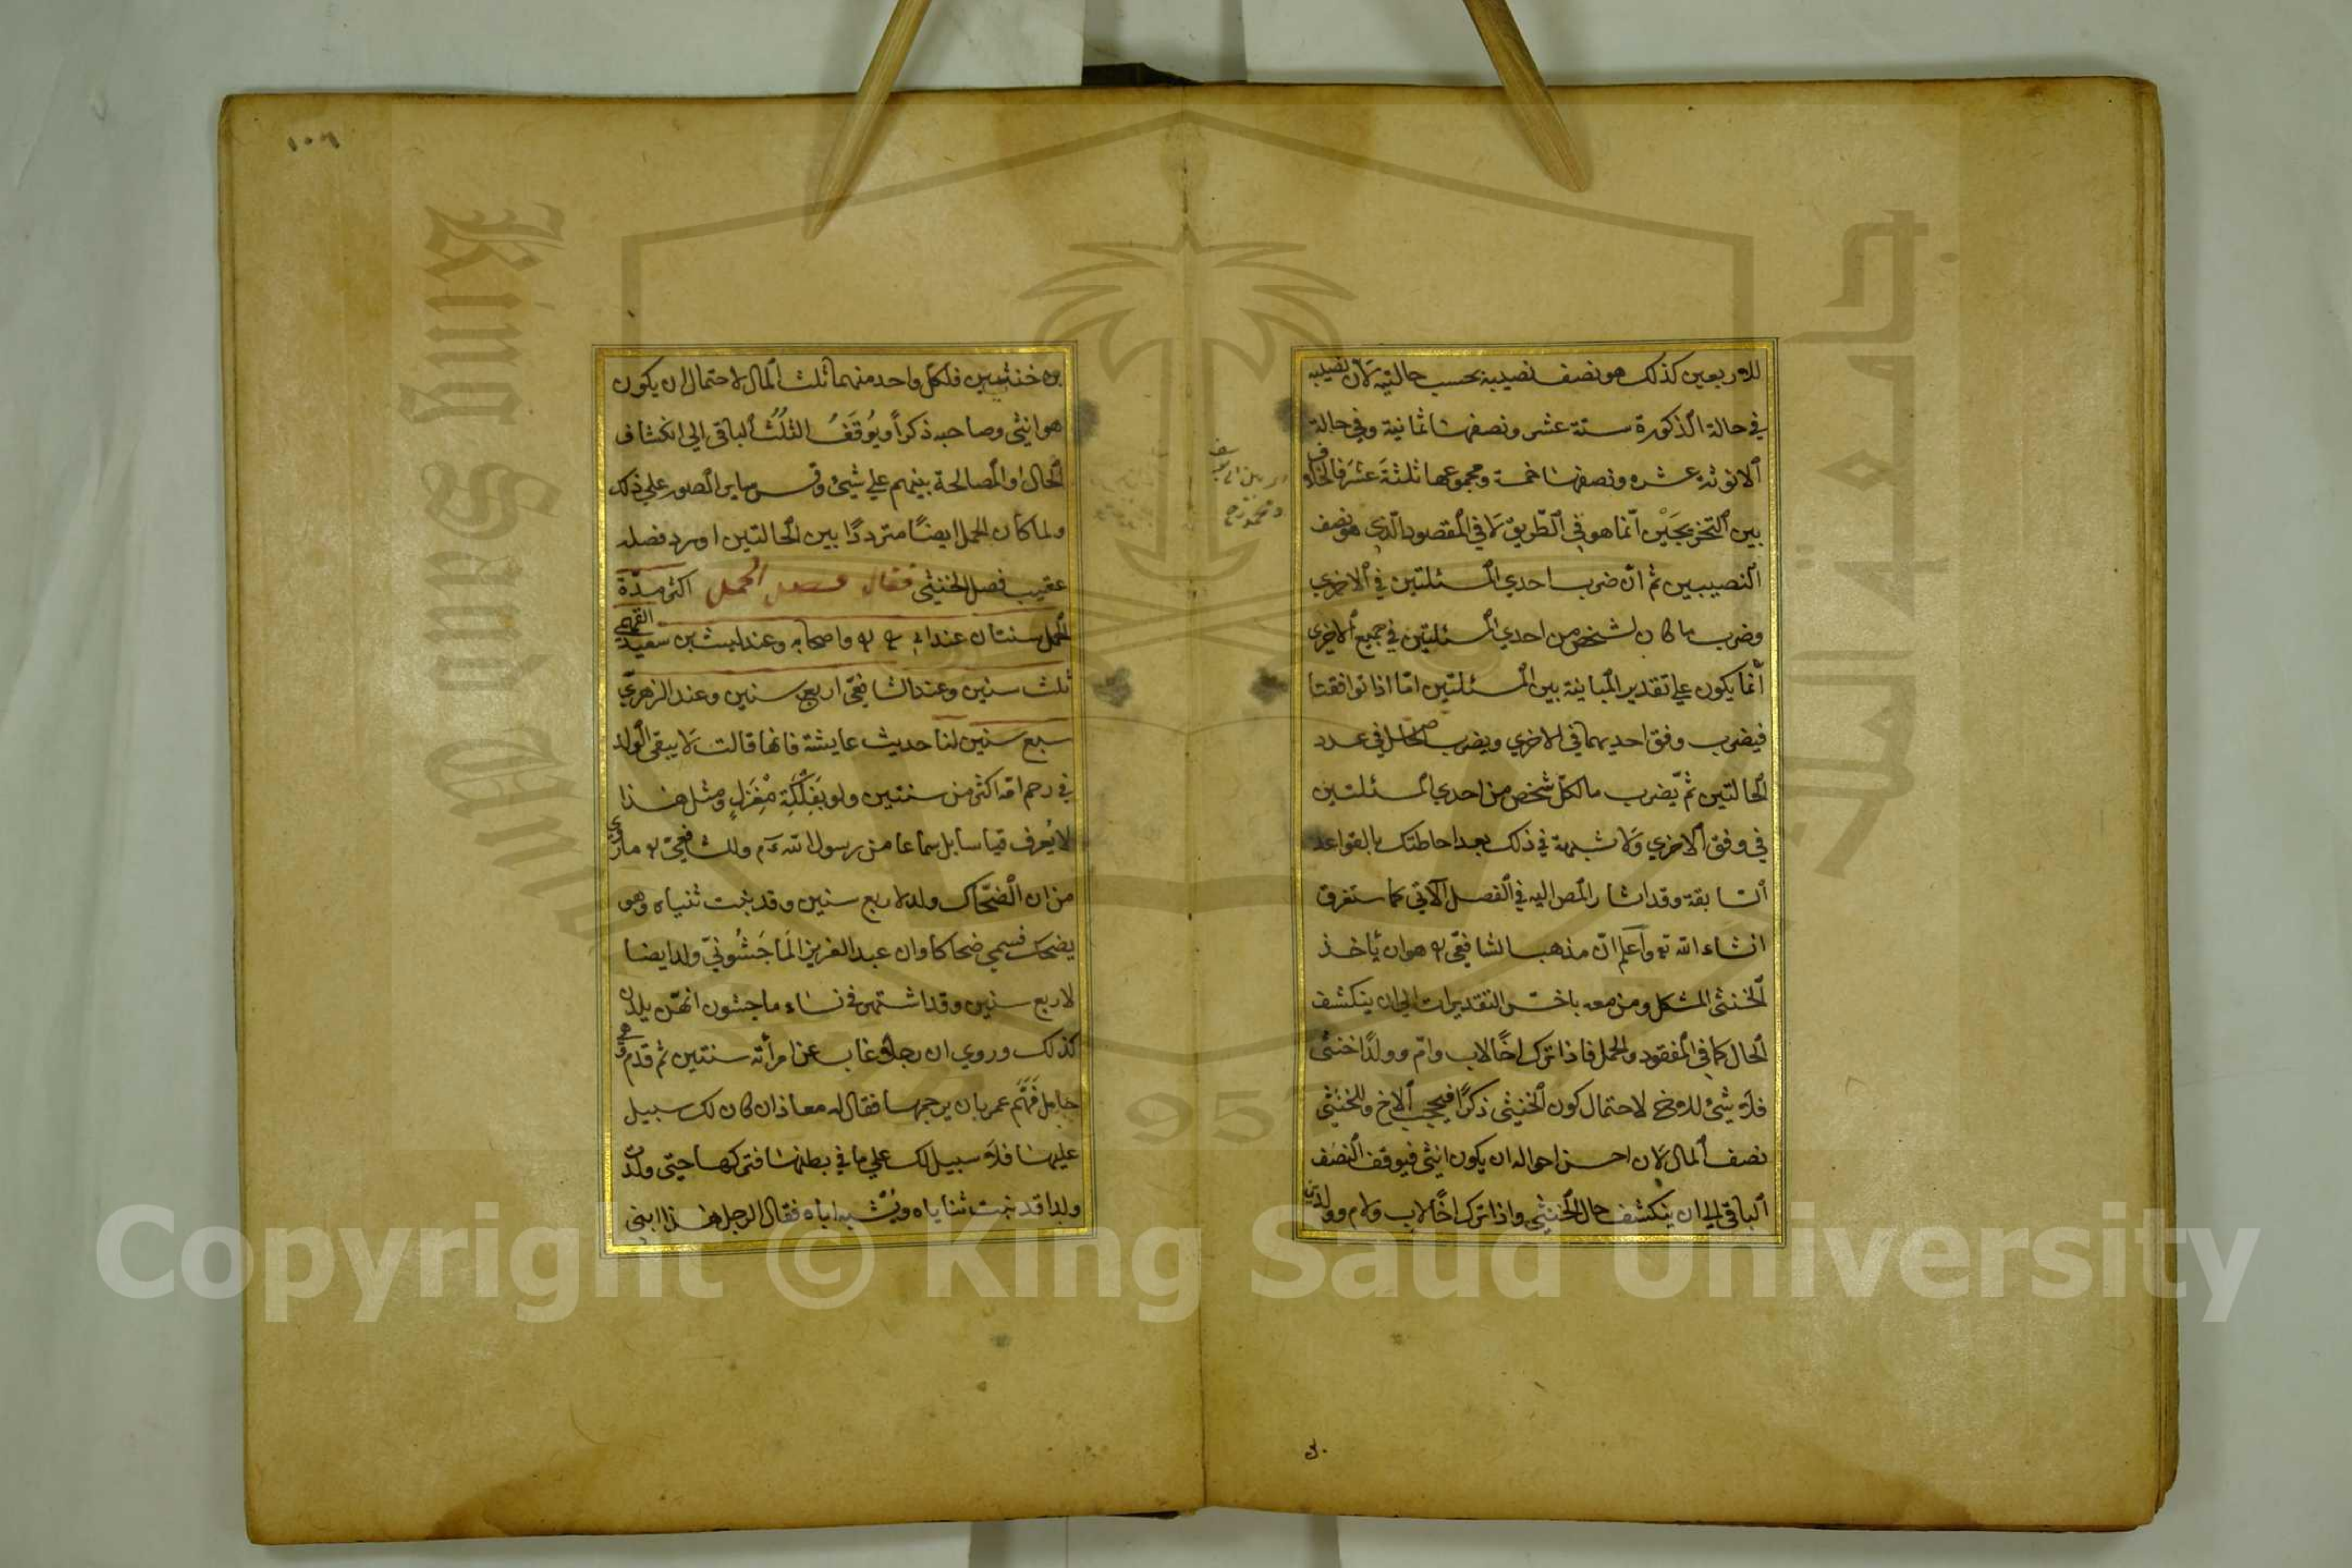 للاربعين كذلك هو نصف نصيبيه بحسب حالتيه لان نصيبه
في حالة الذكورة ستة عشر ونصفها ثمانية وفي حالة
الانوثة عشره ونصفها خمسة ومجموعها ثلثة عشر فالخلاف
بين التخريجين انما هو في الطريق لا في المقصود الذي هو نصف
النصيبين ثم ان ضرب احدي المسئلتين في الاخري
وضرب ما كان لشخص من احدي المسئلتين في جميع الاخري
انما يكون علي تقدير المباينة بين المسئلتين اما اذا توافقتا
فيضرب وفق احديهما في الاخري ويضرب الحاصل في عدد
الحالتين ثم يضرب ما لكل شخص من احدي المسئلتين
في وفق الاخري ولا شبهة في ذلك بعد احاطتك بالقواعد
السابقة وقد اشار المص اليه في الفصل الاتي كما ستعرف
انشاء الله تع واعلم ان مذهب الشافعي ره هو ان ياخذ
الخنثي المشكل ومن معه باخس التقديرات الي ان ينكشف
الحال كما في المفقود والحمل فاذا ترك اخًا لاب وام وولدًا خنثي
فلا شئ للاخ لاحتمال كون الخنثي ذكرًا فيحجب الاخ وللخنثي
نصف المال لان احسن احواله ان يكون انثي فيوقف النصف
الباقي الي ان ينكشف حال الخنثي واذا ترك اخًا لاب ولام وولدين
١٠٦
خنثيين فلكل واحد منهما ثلث المال لاحتمال ان يكون
هو انثي وصاحبه ذكراً ويُوقَفُ الثلُثُ الباقي الي انكشاف
الحال او المصالحة بينهم علي شئ وقس ساير الصور علي ذلك
ولما كان الحمل ايضًا مترددًا بين الحالتين اورد فصله
عقيب فصل الخنثي فقال فصل الحمل اكثر مدّة
الحمل سنتان عند ابي ح ره واصحابه وعند ليث بن سعيد الفهمي
ثلث سنين وعند الشافعي اربع سنين وعند الزهريّ
سبع سنين لنا حديث عايشة فانها قالت لا يبقي الولد
في رحم امه اكثر من سنتين ولو بفَلْكَةِ مِغْزَلٍ ومثل هذا
لا يُعرف قياسا بل سماعا من رسول الله عم وللشافعيّ ره ما روي
من ان الضّحّاك ولد لاربع سنين وقد نبتت ثنياه وهو
يضحك فسمي ضحاكا وان عبد العزيز الماجَشُونيّ ولد ايضا
لاربع سنين وقد اشتهر في نساء ماجشون انهّن يلدن
كذلك وروي ان رجلا غاب عن امرأته سنتين ثم قدم وهي
حامل فَهَمَّ عمر بان يرجمها فقال له معاذ ان كان لك سبيل
عليها فلا سبيل لك علي ما في بطنها فتركها حتى ولدت
ولدا قد نبتت ثناياه ويُشْبه اباه فقال الرجل هذا ابني
King Saud University
1957
Copyright © King Saud University